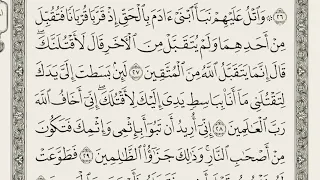 ۞ وَٱتْلُ عَلَيْهِمْ نَبَأَ ٱبْنَىْ ءَادَمَ بِٱلْحَقِّ إِذْ قَرَّبَا قُرْبَانًا فَتُقُبِّلَ
مِنْ أَحَدِهِمَا وَلَمْ يُتَقَبَّلْ مِنَ ٱلْءَاخَرِ قَالَ لَأَقْتُلَنَّكَ ۖ
قَالَ إِنَّمَا يَتَقَبَّلُ ٱللَّهُ مِنَ ٱلْمُتَّقِينَ ٢٧ لَئِنۢ بَسَطتَ إِلَىَّ يَدَكَ
لِتَقْتُلَنِى مَآ أَنَا۠ بِبَاسِطٍ يَدِىَ إِلَيْكَ لِأَقْتُلَكَ ۖ إِنِّىٓ أَخَافُ ٱللَّهَ
رَبَّ ٱلْعَٰلَمِينَ ٢٨ إِنِّىٓ أُرِيدُ أَن تَبُوٓأَ بِإِثْمِى وَإِثْمِكَ فَتَكُونَ
مِنْ أَصْحَٰبِ ٱلنَّارِ ۚ وَذَٰلِكَ جَزَٰٓؤُا۟ ٱلظَّٰلِمِينَ ٢٩ فَطَوَّعَتْ